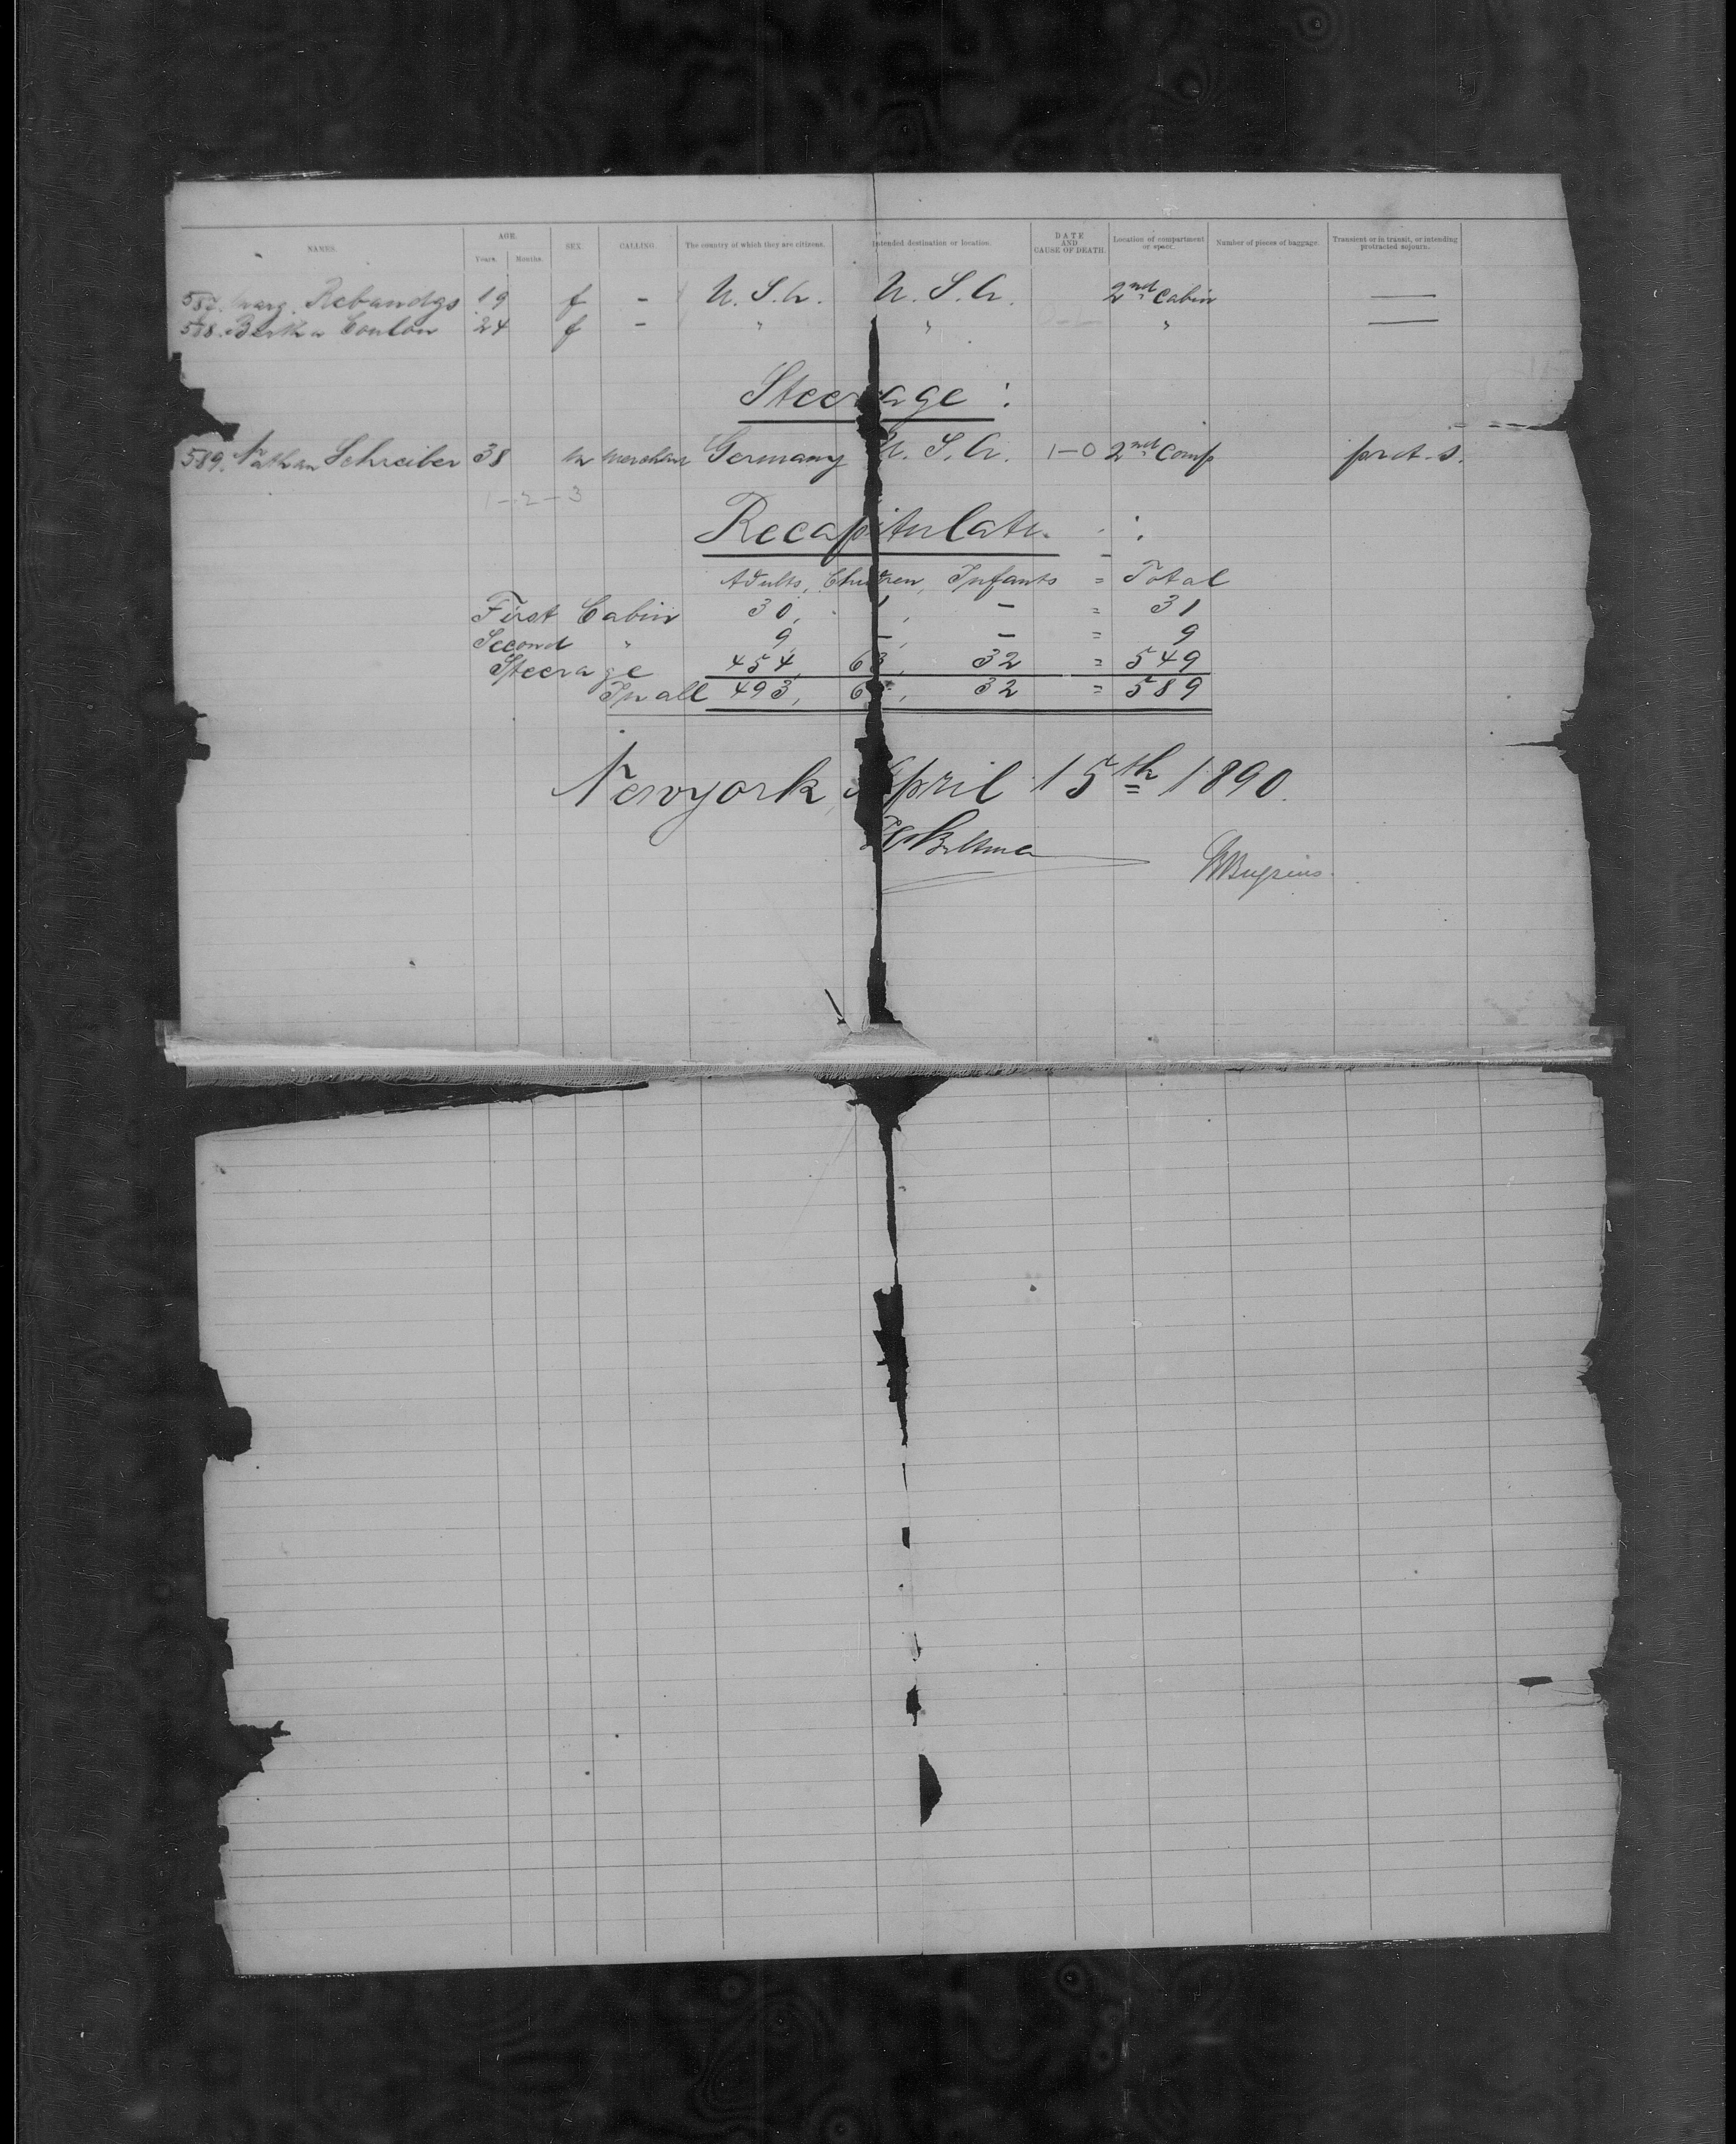 NAMES. AGE. Years. Months. SEX. CALLING. The country of which they are citizens. Intended destination or location. DATE AND CAUSE OF DEATH. Location of compartment or space. Number of pieces of baggage. Transient or in transit, or intending protracted sojourn.
587. Marg. Rebandgs 19 f - U. S. A. U. S. A. 2nd Cabin —
588. Bertha Coulon 24 f - " " " —
Steerage :
589. Nathan Schreiber 38 m Merchant Germany U. S. A. 1-0 2nd Comp prot. s.
1-2-3
Recapitulati :
Adults, Children, Infants = Total
First Cabin 30, 1, - = 31
Second " 9, -, - = 9
Steerage 454, 63, 32 = 549
In all 493, 6, 32 = 589
Newyork, April 15th 1890.